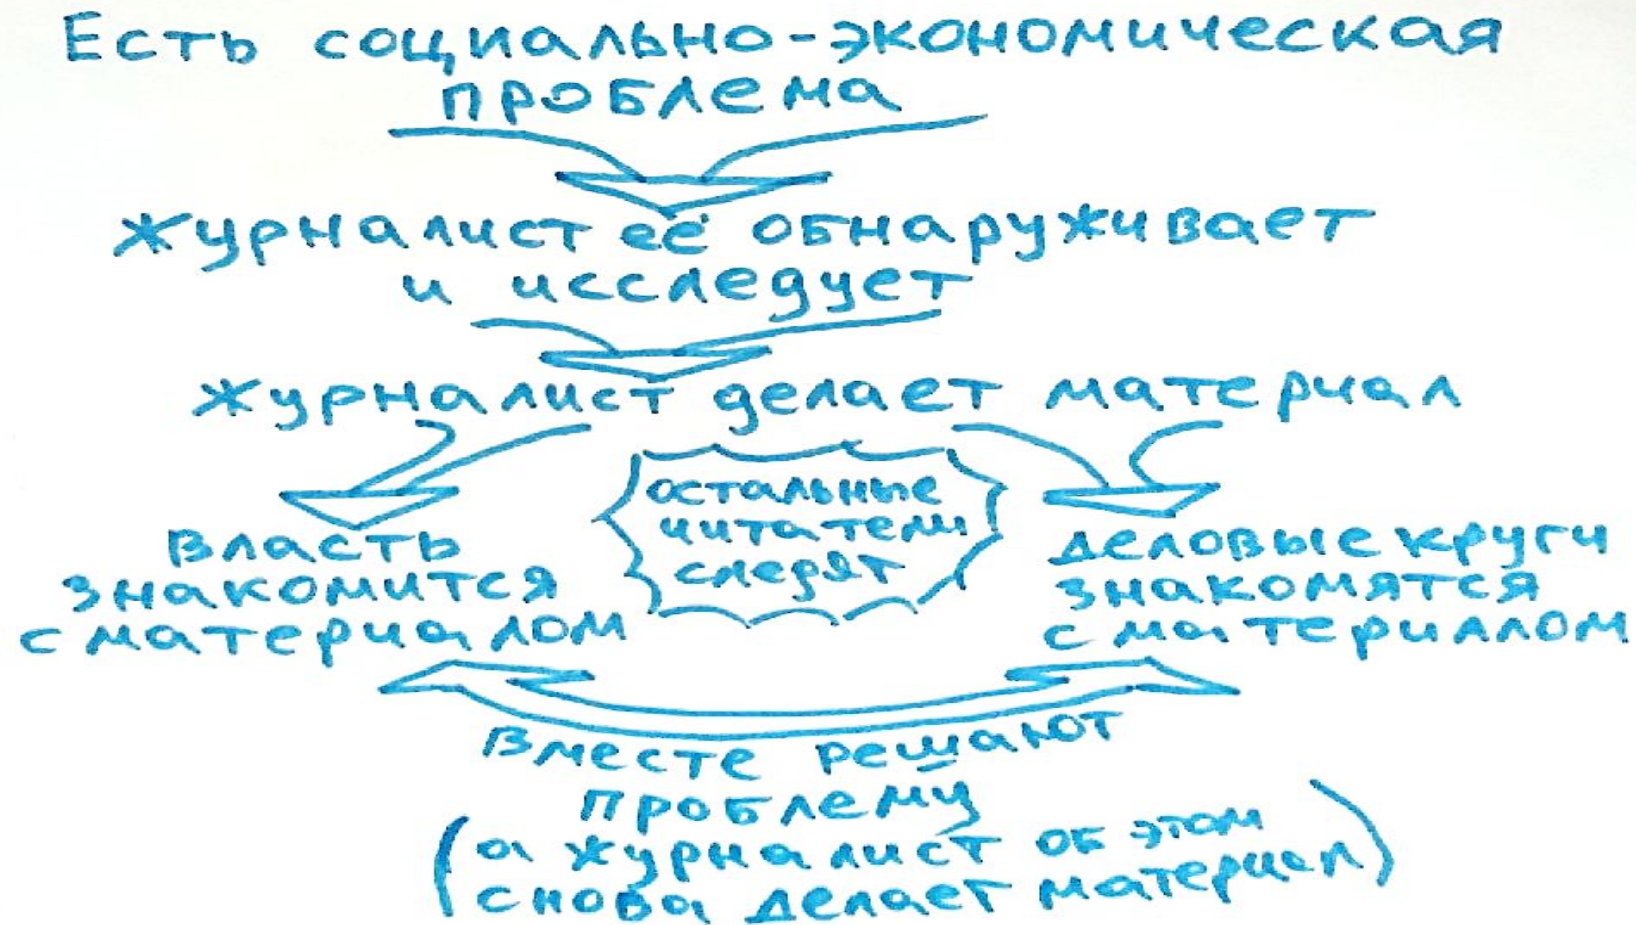 Есть социально-экономическая
проблема
журналист её обнаруживает
и исследует
журналист делает материал
остальные
читатели
следят
Власть
знакомится
с материалом
Деловые круги
знакомятся
с материалом
Вместе решают
проблему
(а журналист об этом
снова делает материал)